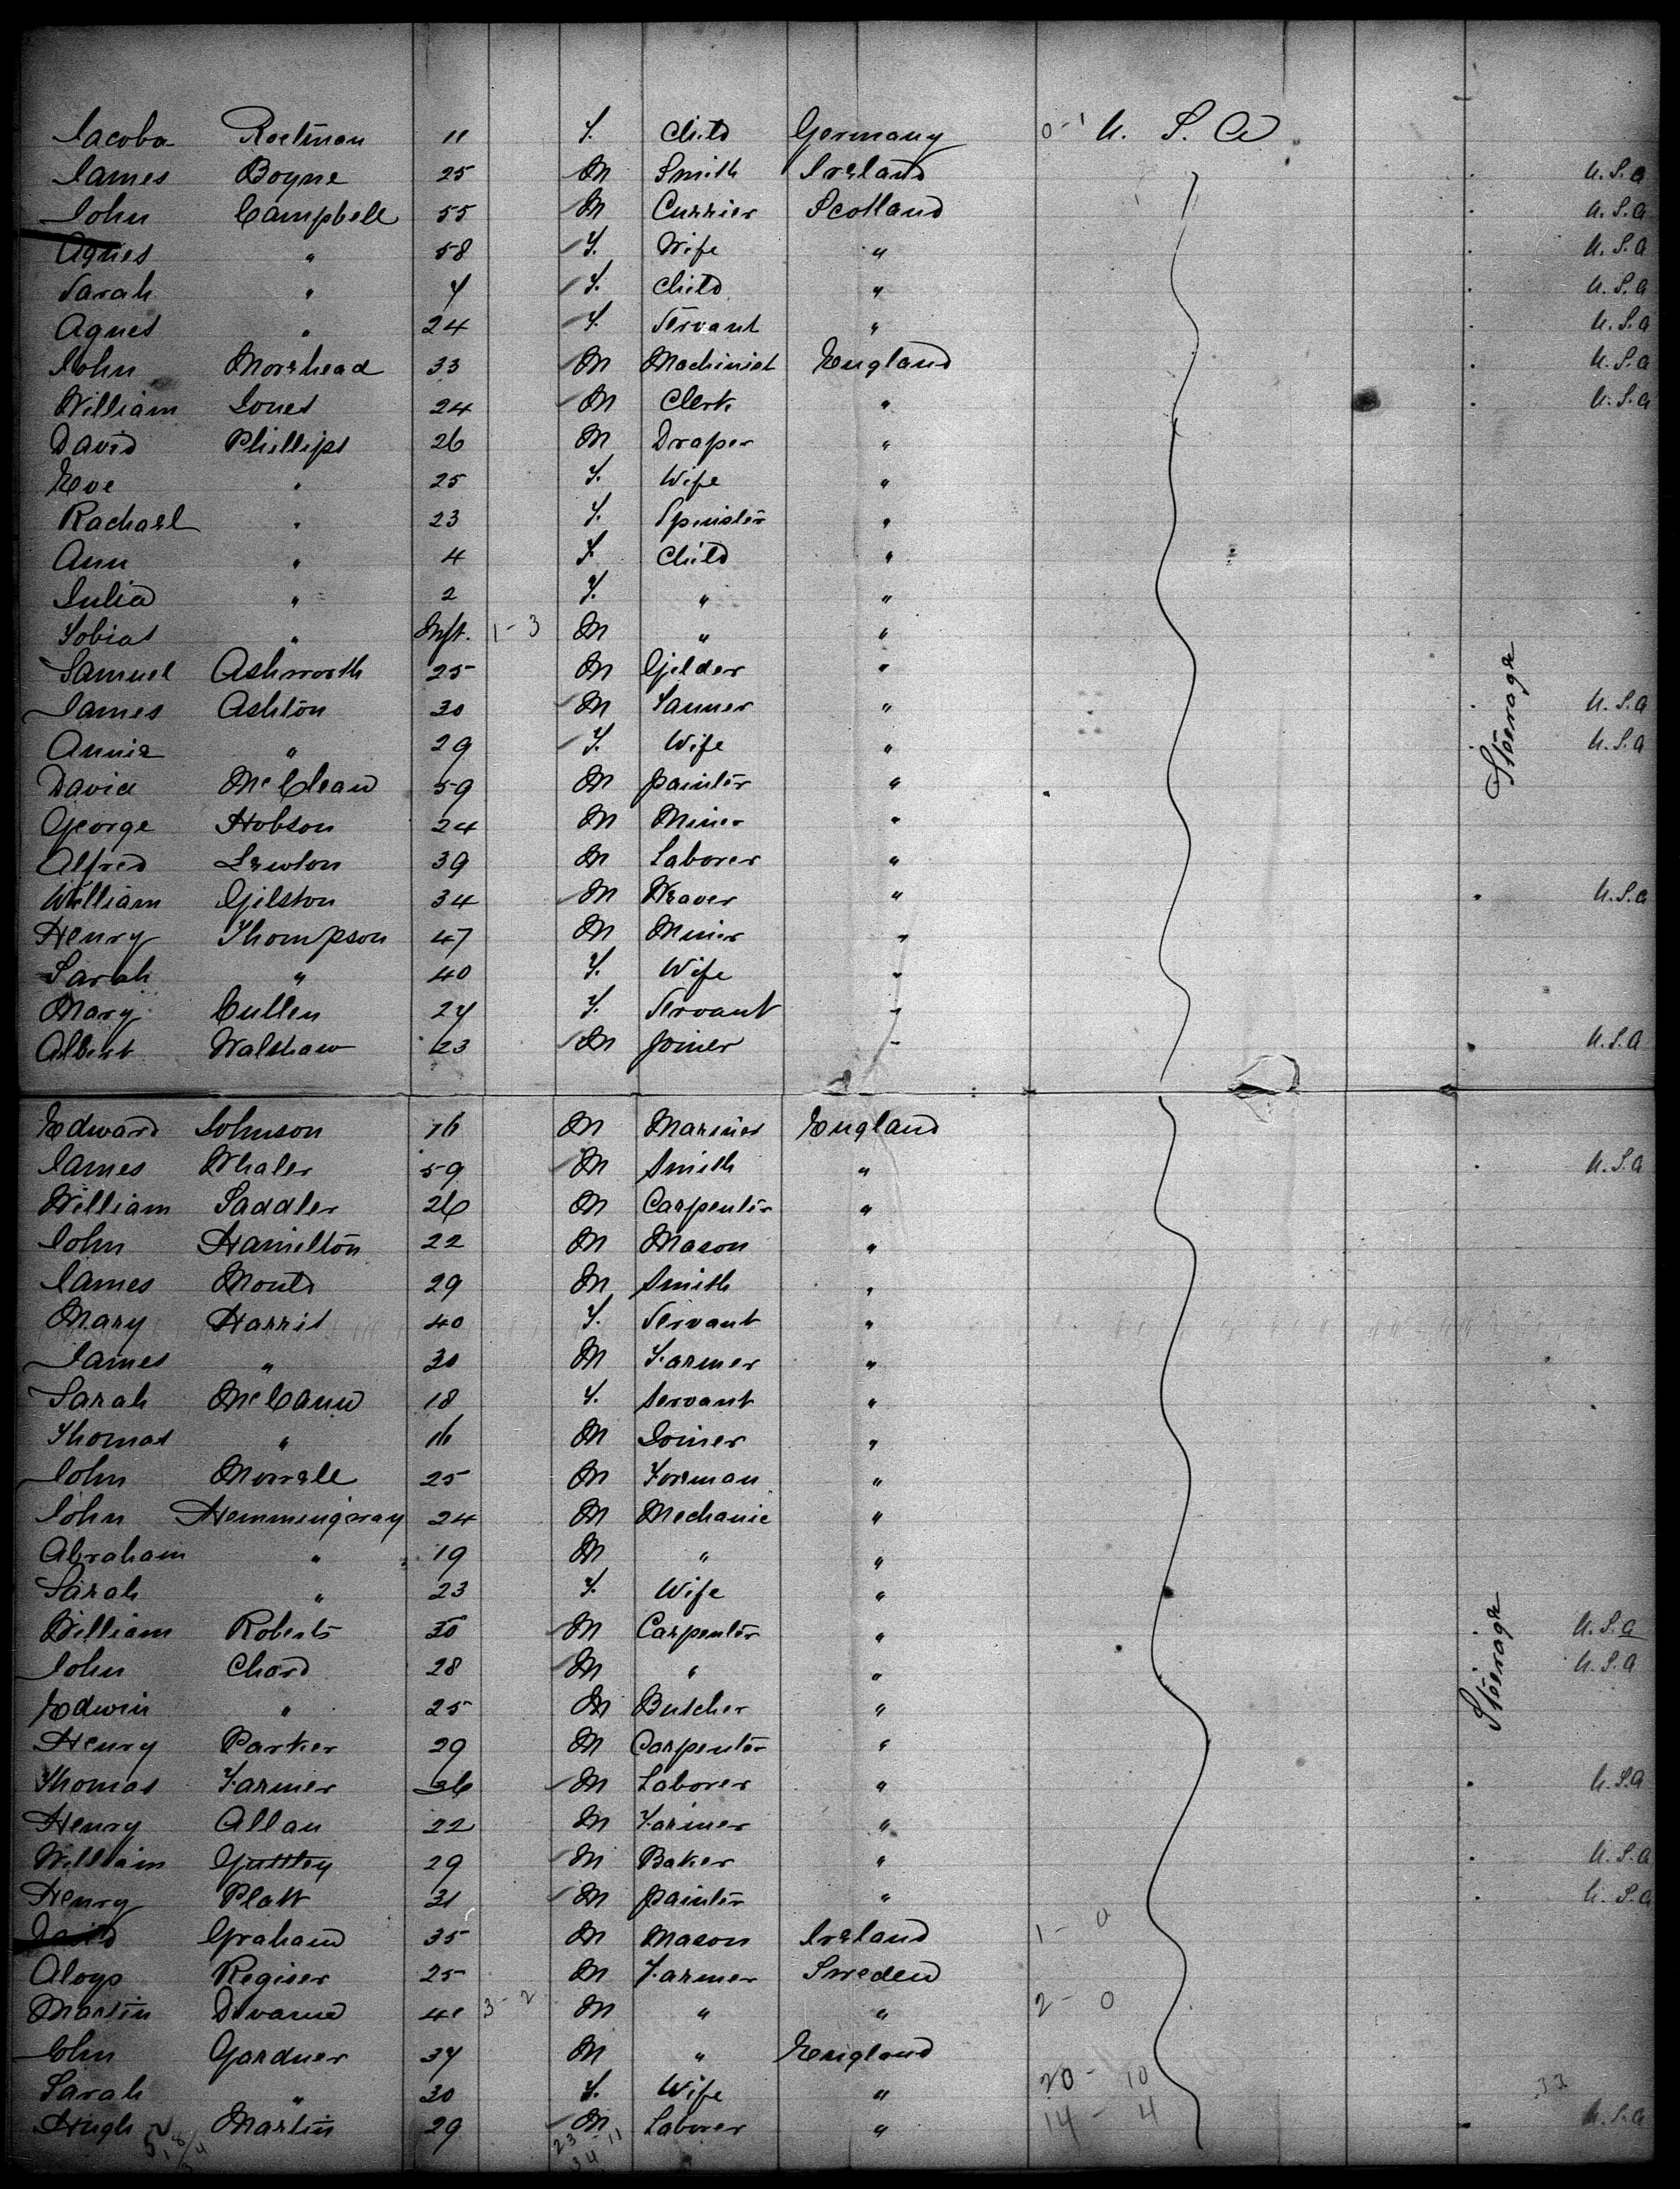 Jacoba Roelman 11 F. Child Germany 0-1 U. S. A
James Boyne 25 M Smith Ireland U.S.A
John Campbell 55 M Currier Scotland U.S.A
Agnes " 58 F. Wife " U.S.A
Sarah " 7 F. Child " U.S.A
Agnes " 24 F. Servant " U.S.A
John Morehead 33 M Machinist England U.S.A
William Jones 24 M Clerk " U.S.A
David Phillips 26 M Draper "
Eve " 25 F. Wife "
Rachael " 23 F. Spinster "
Ann " 4 F. Child "
Julia " 2 F. " "
Tobias " Inft. 1-3 M " "
Samuel Ashworth 25 M Gilder "
James Ashton 30 M Tanner " U.S.A
Annie " 29 F. Wife " U.S.A
Steerage
David McClean 59 M painter "
George Hobson 24 M Miner "
Alfred Lewton 39 M Laborer "
William Gilston 34 M Weaver " U.S.A
Henry Thompson 47 M Miner "
Sarah " 40 F. Wife "
Mary Cullen 27 F. Servant "
Albert Walshaw 23 M Joiner " U.S.A
Edward Johnson 16 M Mariner England
James Whaler 59 M Smith " U.S.A
William Saddler 26 M Carpenter "
John Hamilton 22 M Mason "
James Mould 29 M Smith "
Mary Harris 40 F. Servant "
James " 30 M Farmer "
Sarah McCann 18 F. Servant "
Thomas " 16 M Joiner "
John 25 M Foreman "
John Hemmingway 24 M Mechanic "
Abraham " 19 M " "
Sarah " 23 F. Wife "
William Roberts 30 M Carpenter " U.S.A
John Chard 28 M " " U.S.A
Steerage
Edwin " 25 M Butcher "
Henry Parker 29 M Carpenter "
Thomas Farmer 36 M Laborer " U.S.A
Henry Allan 22 M Farmer "
William 29 M Baker " U.S.A
Henry Platt 31 M painter " U.S.A
David Graham 35 M Mason Ireland 1-0
Aloys Regiser 25 M Farmer Sweden
Martin 41 3-2 M " " 2-0
John Gardner 37 M " England
Sarah " 30 F. Wife " 20-10 33
Hugh Martin 29 M Laborer " 14-4 U.S.A
23-11
34